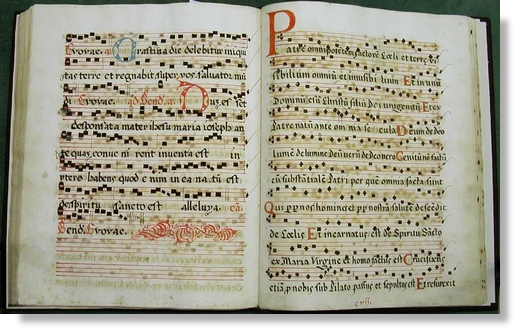 Evovae. Crastina die delebitur iniqui
tas terre et regnabit super vos saluator mū
di Evovae. ad Bend. us, esset
desponsata mater ihesu maria ioseph an
te quaz conuenirent inventa est in
ptero habens quod enim in ea natū est
de spiritu sancto est alleluya. ad
Bend. Evovae.
Patrē omnipotētem factorē Coeli et terre vi
sibilium omniū et inuisibiliū Et in unū
Dominū Iesū Christū filiū Dei unigenitū Et ex
Patre natū ante omnia secula Deum de deo
Lumē de lumine Deū verū de Deo vero Genitū nō factū
cū substātialē Patri per quē omnia facta sūnt
Qui pp nos homines et pp nostrā salutē descēdit
de Coelis Et incarnatus est de Spiritu Sācto
ex Maria Virgine et homo factus est Crucifixus
etiā p nobis sub Pilato passus et sepultus est Et resurexit